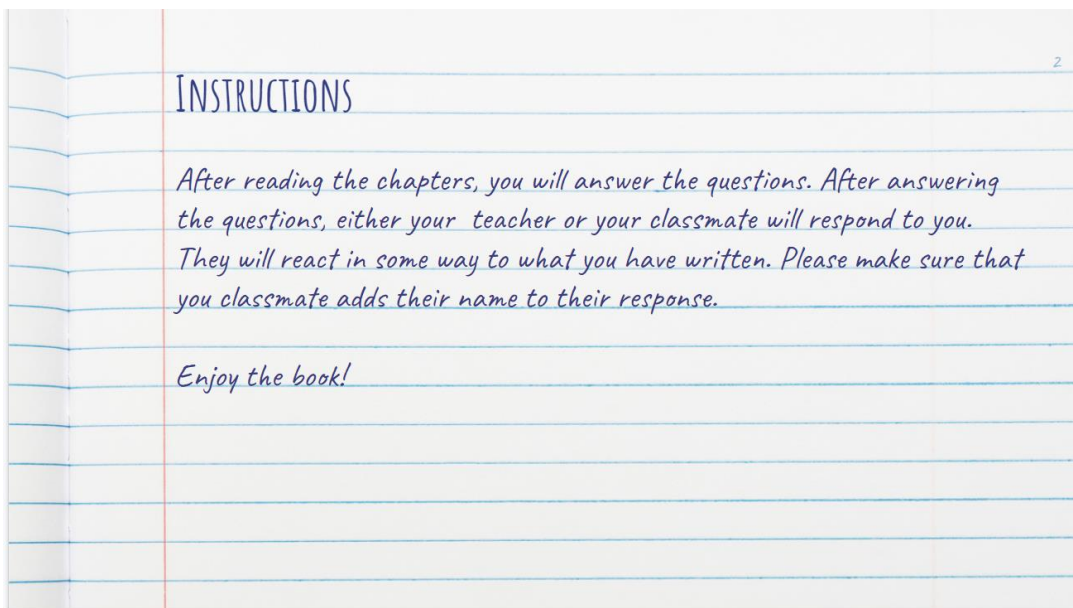 2
INSTRUCTIONS
After reading the chapters, you will answer the questions. After answering
the questions, either your  teacher or your classmate will respond to you.
They will react in some way to what you have written. Please make sure that
you classmate adds their name to their response.
Enjoy the book!